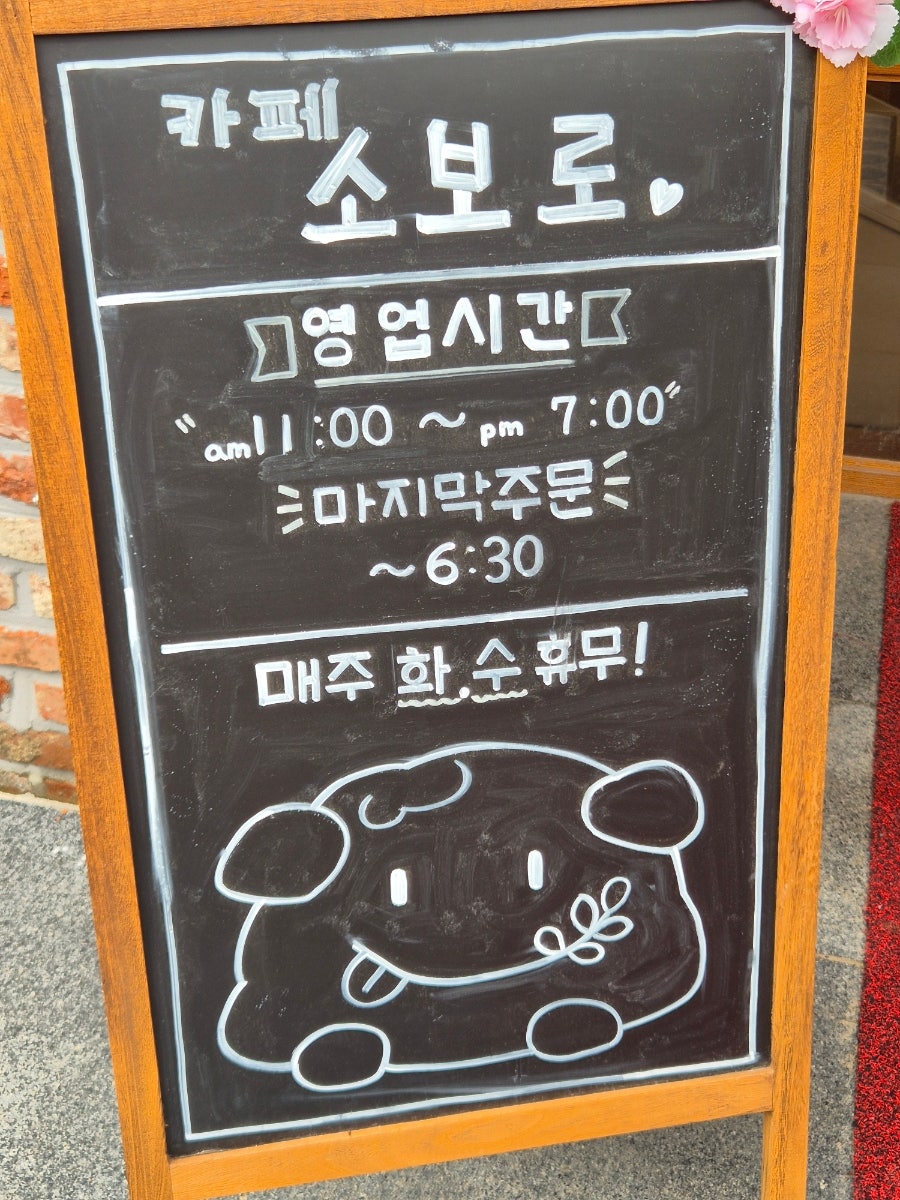 카페
소보로
영업시간
am 11:00 ~ pm 7:00
마지막주문
~6:30
매주 화.수 휴무!